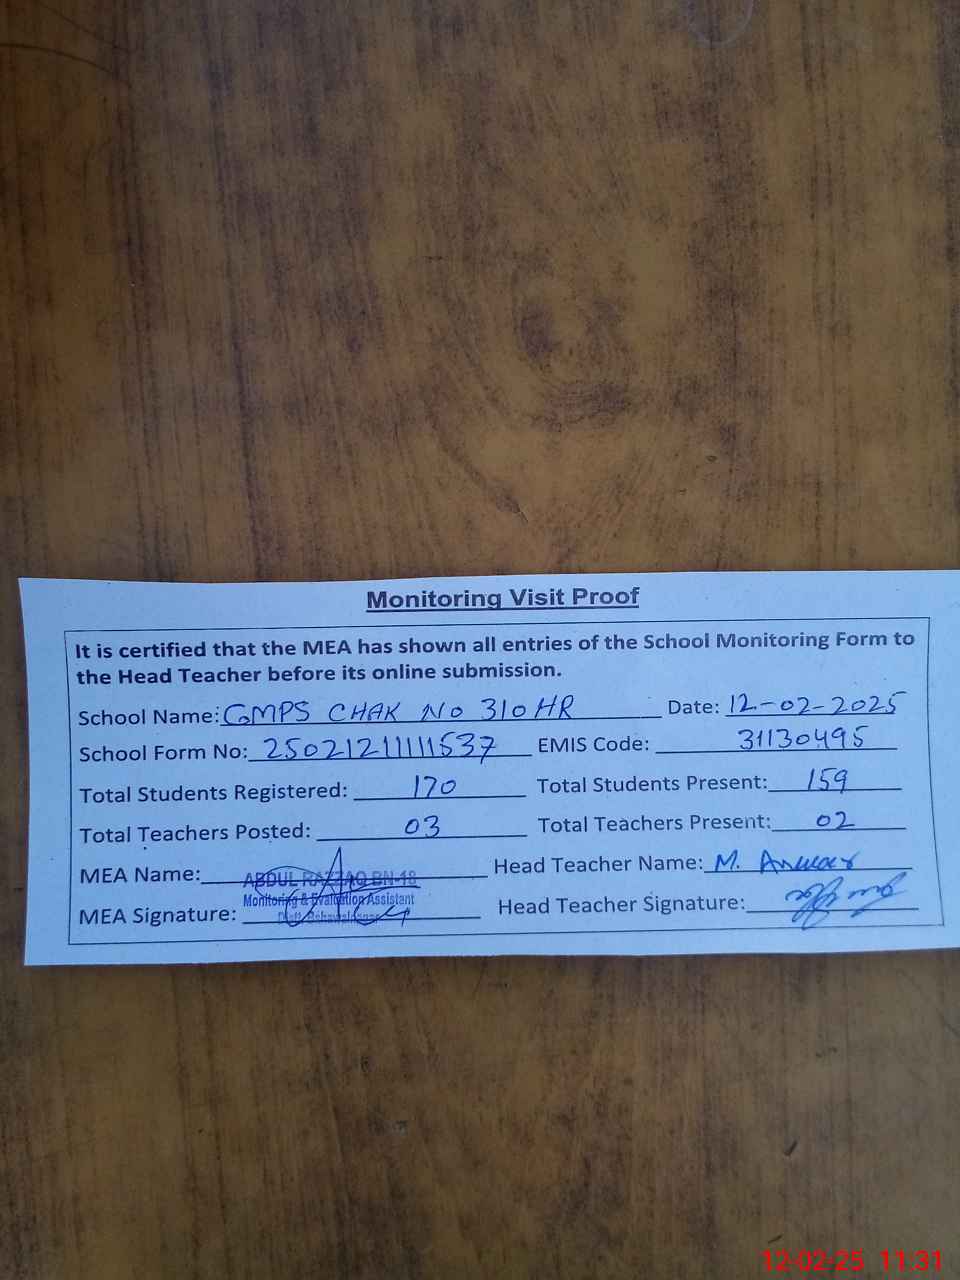 Monitoring Visit Proof
It is certified that the MEA has shown all entries of the School Monitoring Form to
the Head Teacher before its online submission.
School Name: GMPS CHAK NO 310HR Date: 12-02-2025
School Form No: 25021211111537 EMIS Code: 31130495
Total Students Registered: 170 Total Students Present: 159
Total Teachers Posted: 03 Total Teachers Present: 02
MEA Name: ABDUL RAZZAQ BN-18 Head Teacher Name: M. Anwar
Monitoring & Evaluation Assistant
MEA Signature: Head Teacher Signature:
12-02-25 11:31